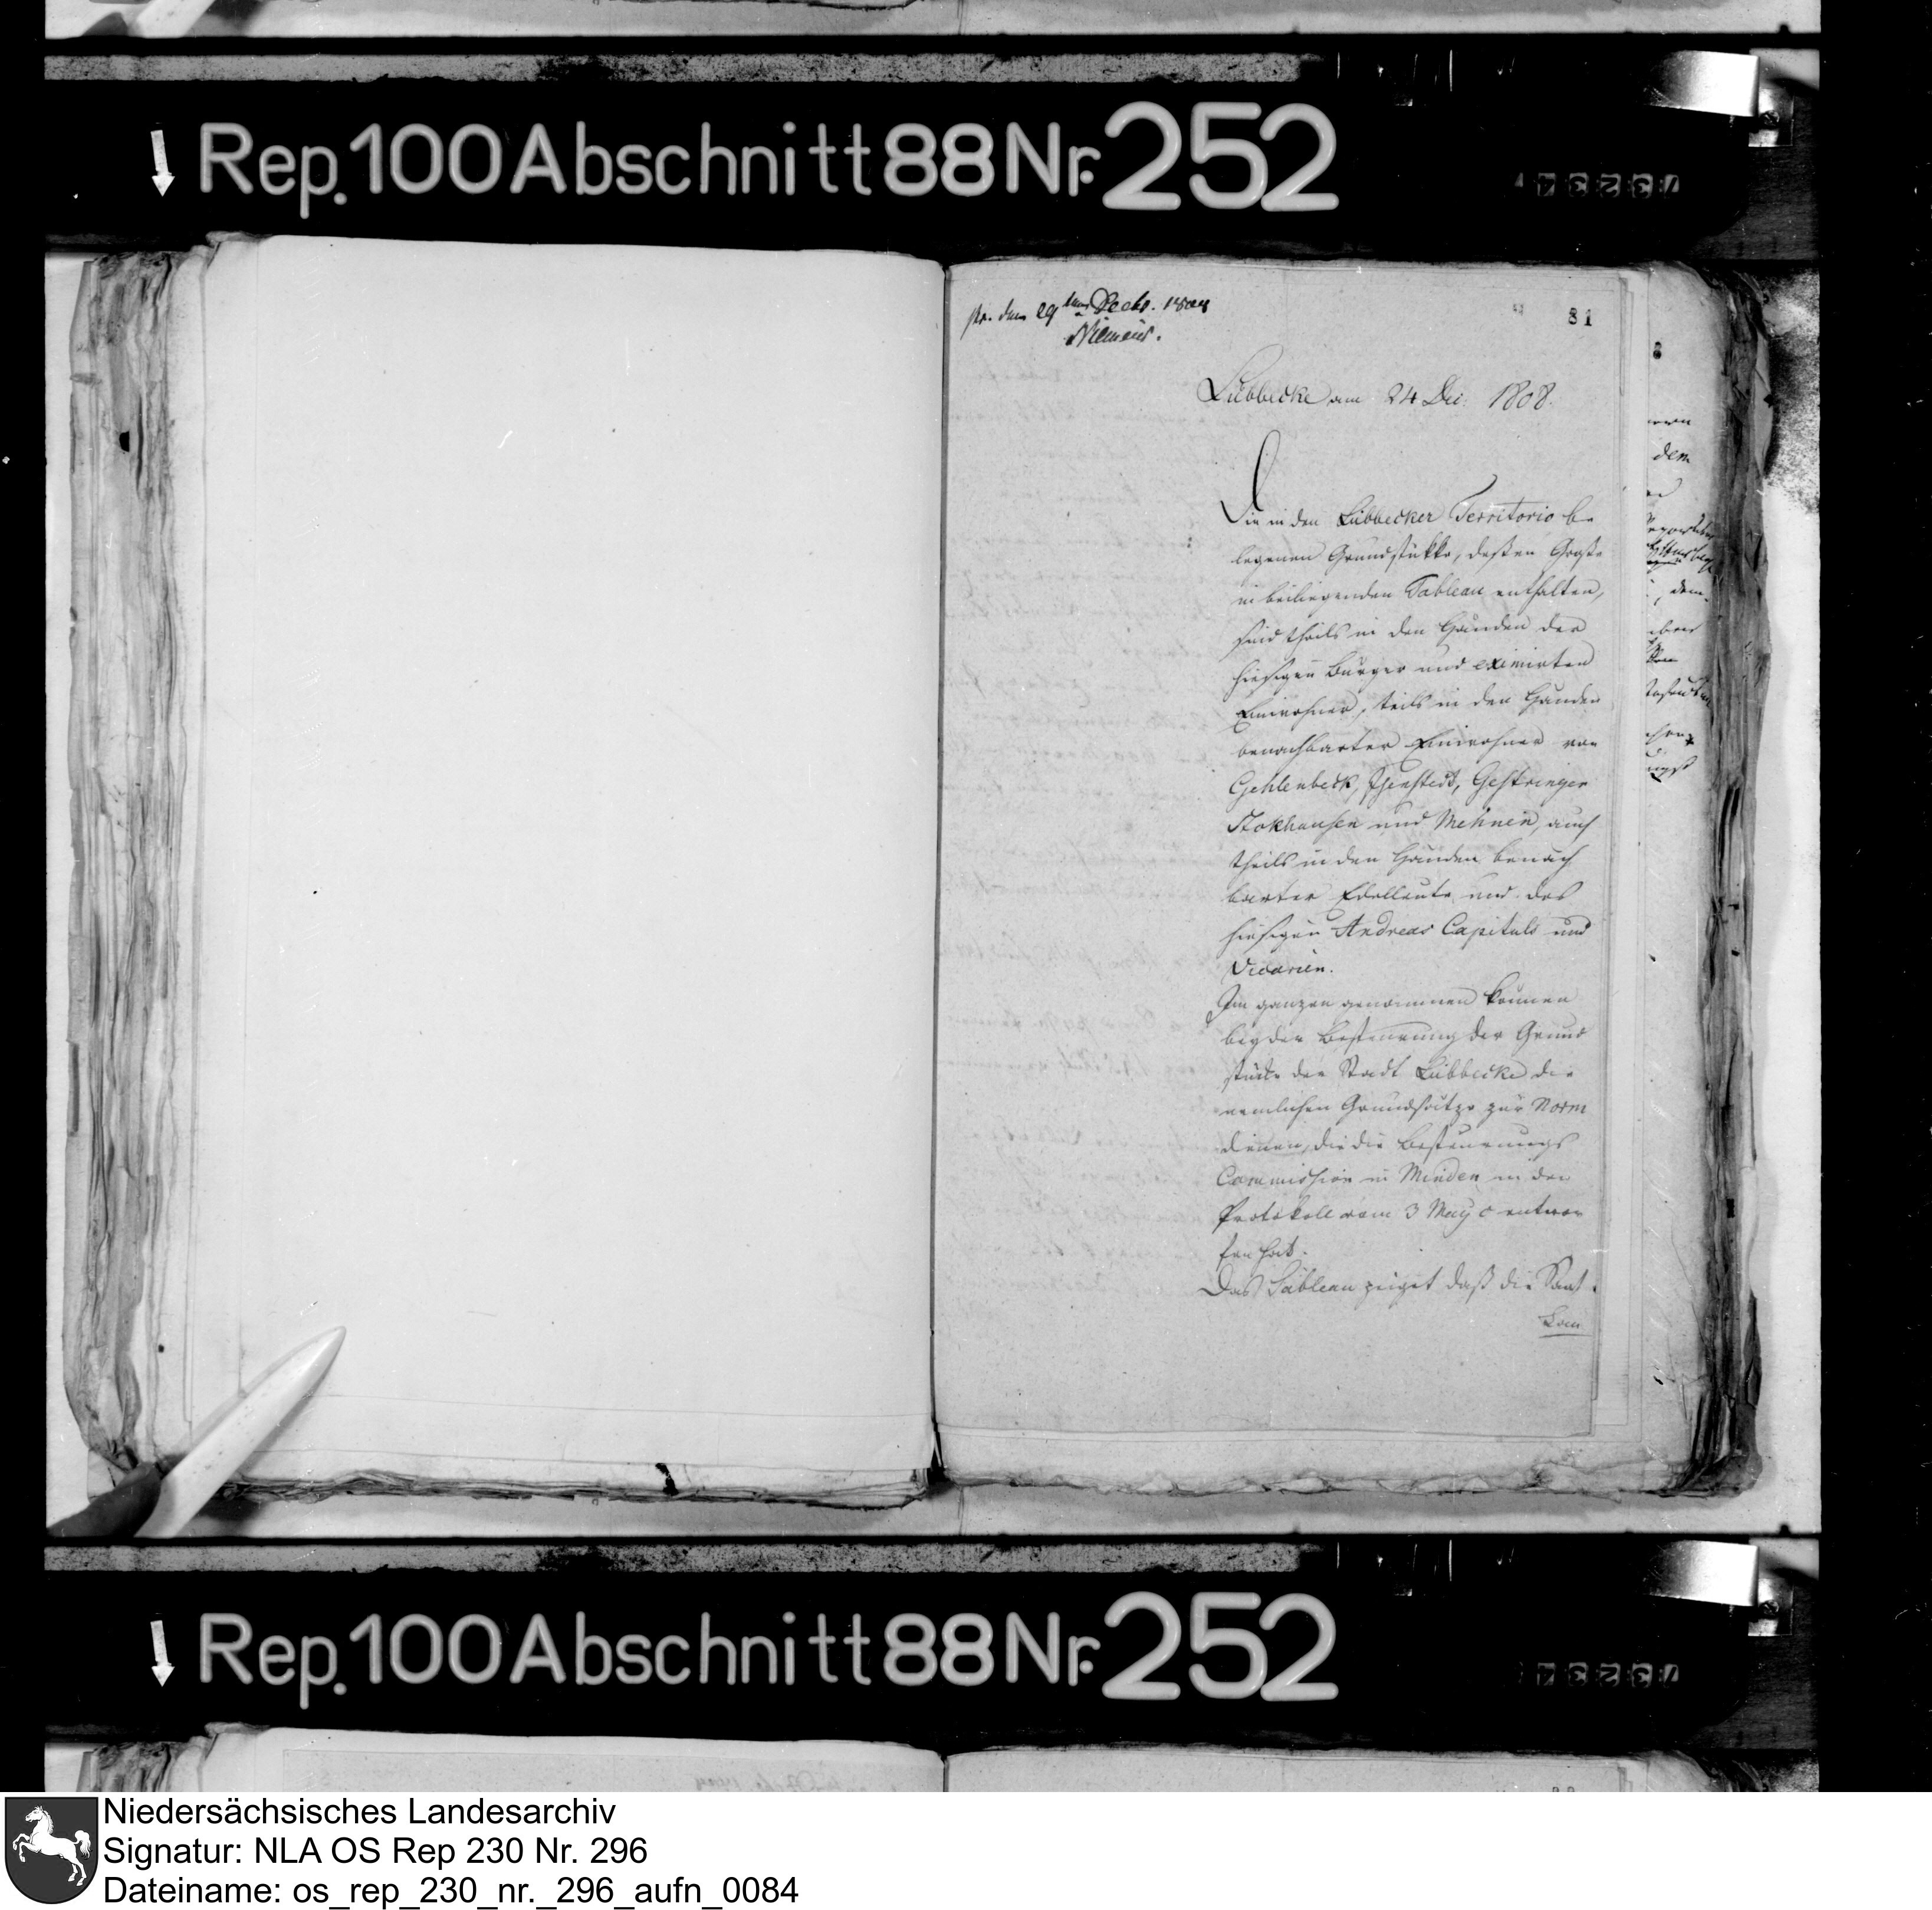 Rep. 100 Abschnitt 88 Nr. 252
73234
pr. dem 29ten Decbr. 1808
81
Lübbecke am 24 Dec. 1808.
Die in den Lübbecker Territorio be
legenen Grundstükke, deßen Große
in beiliegenden Tableau enthalten,
sind theils in den Händen der
hiesigen Bürger und eximirten
Einwohner, teils in den Händen
benachbarter Einwohner von
Gehlenbeck, Isenstedt, Gestringen
Stokhausen und Mehnen, auch
theils in den Händen benach
barter Edelleute und des
hiesigen Andreas Capituls und
Vicarien.
Im ganzen genommen können
bey der Besteurung der Grund
stücke der Stadt Lübbecke die
nemlichen Grundsätze zur Norm
dienen, die die Besteurungs
Commission in Minden in den
Protokoll vom 3 May c entwor
fen hat.
Das Tableau zeiget daß die Saat
dem
Rep. 100 Abschnitt 88 Nr. 252
73234
Niedersächsisches Landesarchiv
Signatur: NLA OS Rep 230 Nr. 296
Dateiname: os_rep_230_nr._296_aufn_0084